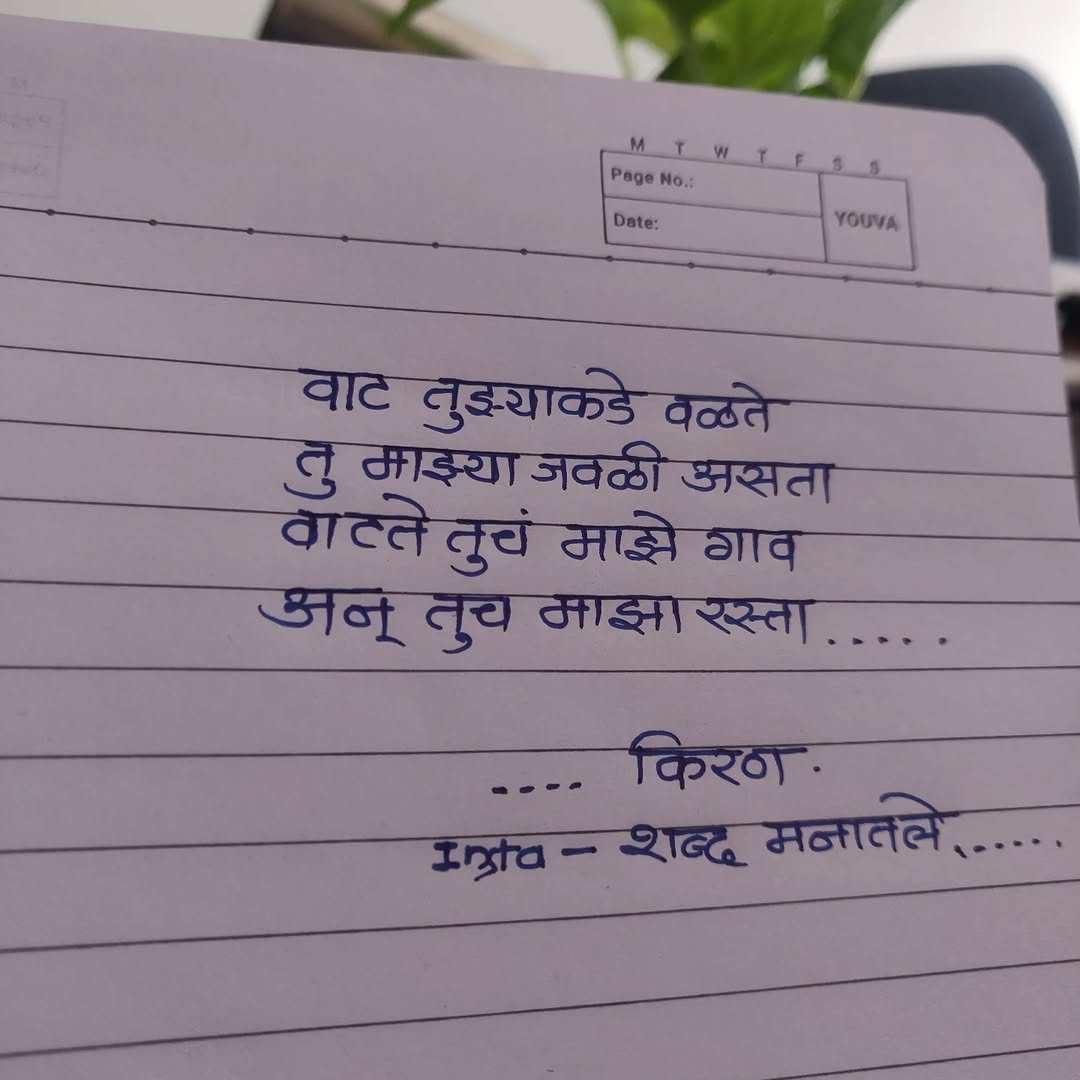 M T W T F S S
Page No.:
Date:
YOUVA
वाट तुझ्याकडे वळते
तु माझ्या जवळी असता
वाटते तुचं माझे गाव
अन् तुच माझा रस्ता.....
.... किरण.
Insta - शब्द मनातले......